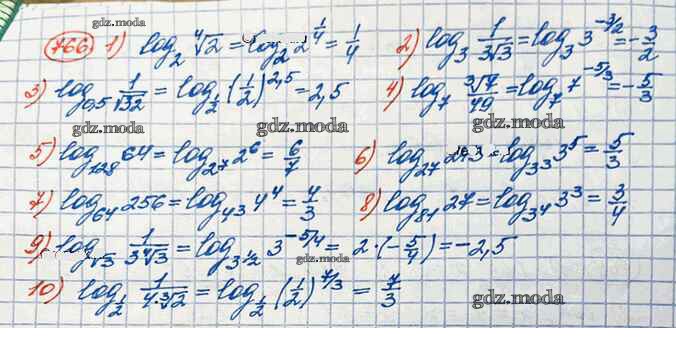 gdz.moda gdz.moda
766. 1) log₂ ⁴√2 = log₂ 2^(1/4) = 1/4 2) log₃ 1/(3√3) = log₃ 3^(-3/2) = -3/2
3) log₀,₅ 1/√32 = log_(1/2) (1/2)^(2,5) = 2,5 4) log₇ ³√7/49 = log₇ 7^(-5/3) = -5/3
gdz.moda gdz.moda
5) log₁₂₈ 64 = log_(2^7) 2⁶ = 6/7 6) log₂₇ 243 = log_(3^3) 3⁵ = 5/3
gdz.moda
7) log₆₄ 256 = log_(4^3) 4⁴ = 4/3 8) log₈₁ 27 = log_(3^4) 3³ = 3/4
gdz.moda
9) log_(√3) 1/(3⁴√3) = log_(3^(1/2)) 3^(-5/4) = 2·(-5/4) = -2,5
gdz.moda
10) log_(1/2) 1/(4·³√2) = log_(1/2) (1/2)^(7/3) = 7/3
gdz.moda